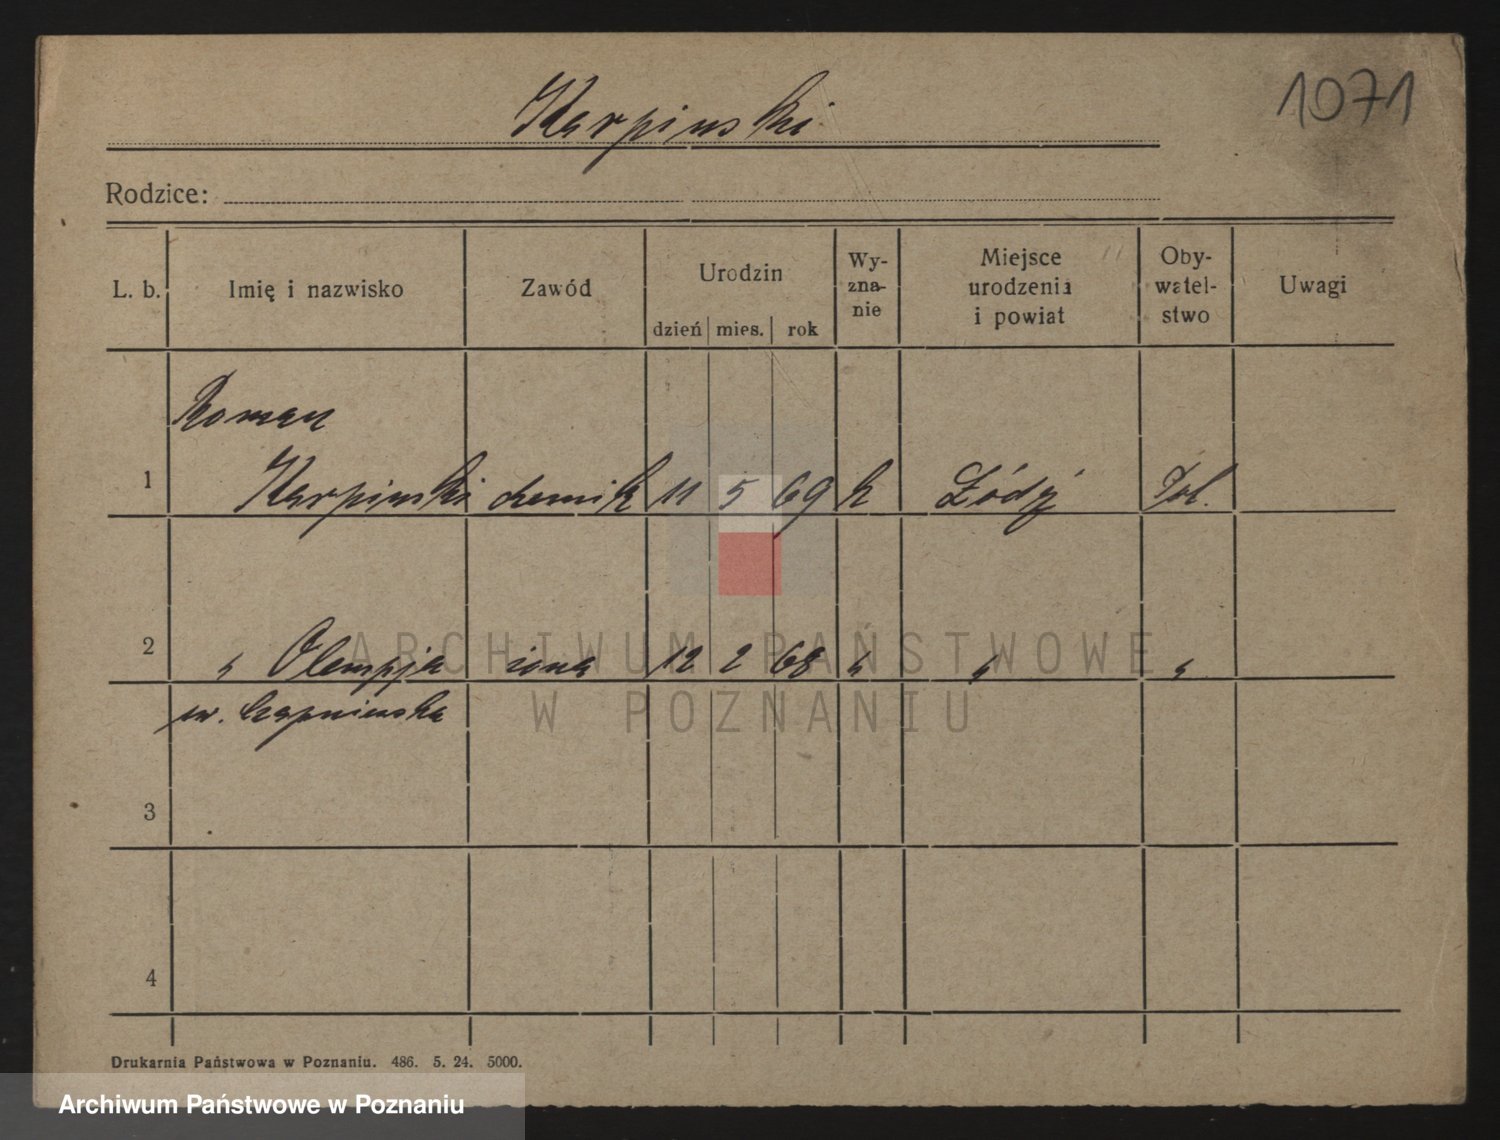 1071
Karpinski
Rodzice:
L. b. Imię i nazwisko Zawód Urodzin dzień mies. rok Wy-zna-nie Miejsce urodzenia i powiat Oby-watel-stwo Uwagi
Roman
1 Karpinski chemik 11 5 69 k Łódź Pol.
2 " Olempja żona 12 2 68 " " "
ur.
3
4
Drukarnia Państwowa w Poznaniu. 486. 5. 24. 5000.
ARCHIWUM PAŃSTWOWE
W POZNANIU
Archiwum Państwowe w Poznaniu